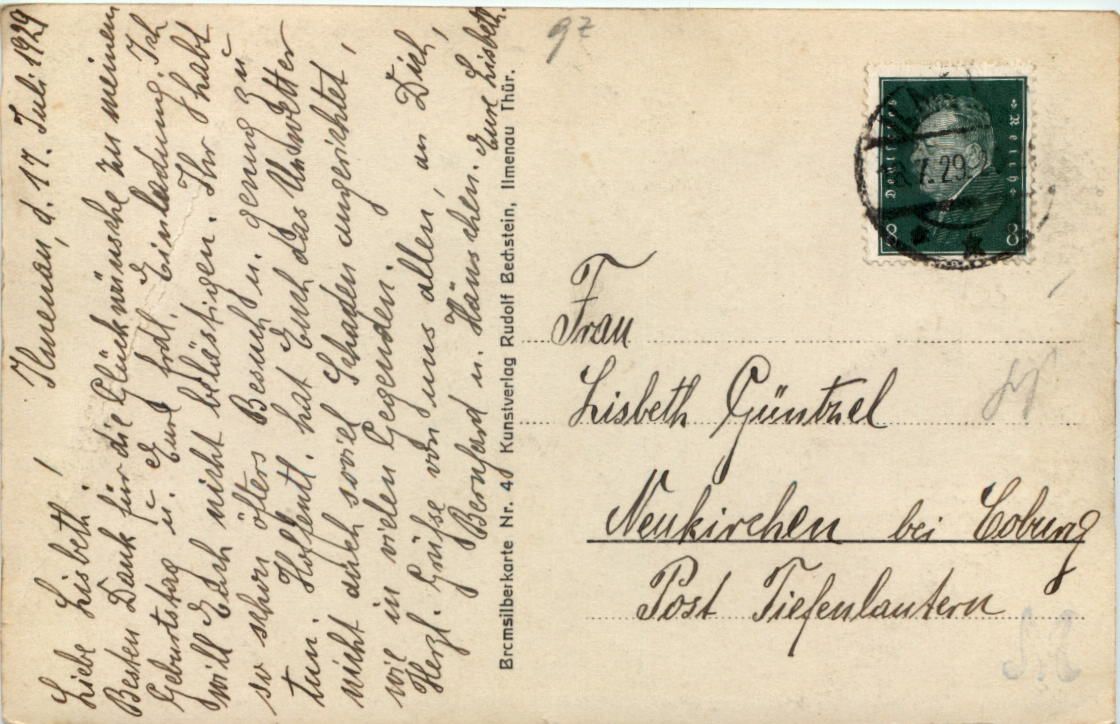 Ilmenau, d. 17. Juli 1929
Liebe Lisbeth!
Besten Dank für die Glückwünsche zu meinem
Geburtstag u. Eure frdl. Einladung. Ich
will Euch nicht belästigen. Ihr habt
so schon öfters Besuch u. genug zu
tun. Hoffentl. hat Euch das Unwetter
nicht auch soviel Schaden angerichtet,
wie in vielen Gegenden.
Herzl. Grüße von uns allen, an Dich,
Bernhard u. Hänschen. Eure Lisbeth.
Bromsilberkarte Nr. 40 Kunstverlag Rudolf Bechstein, Ilmenau Thür.
gz
Deutsches Reich
8 8
7.29
Frau
Lisbeth Güntzel
Neukirchen bei Coburg
Post Tiefenlautern